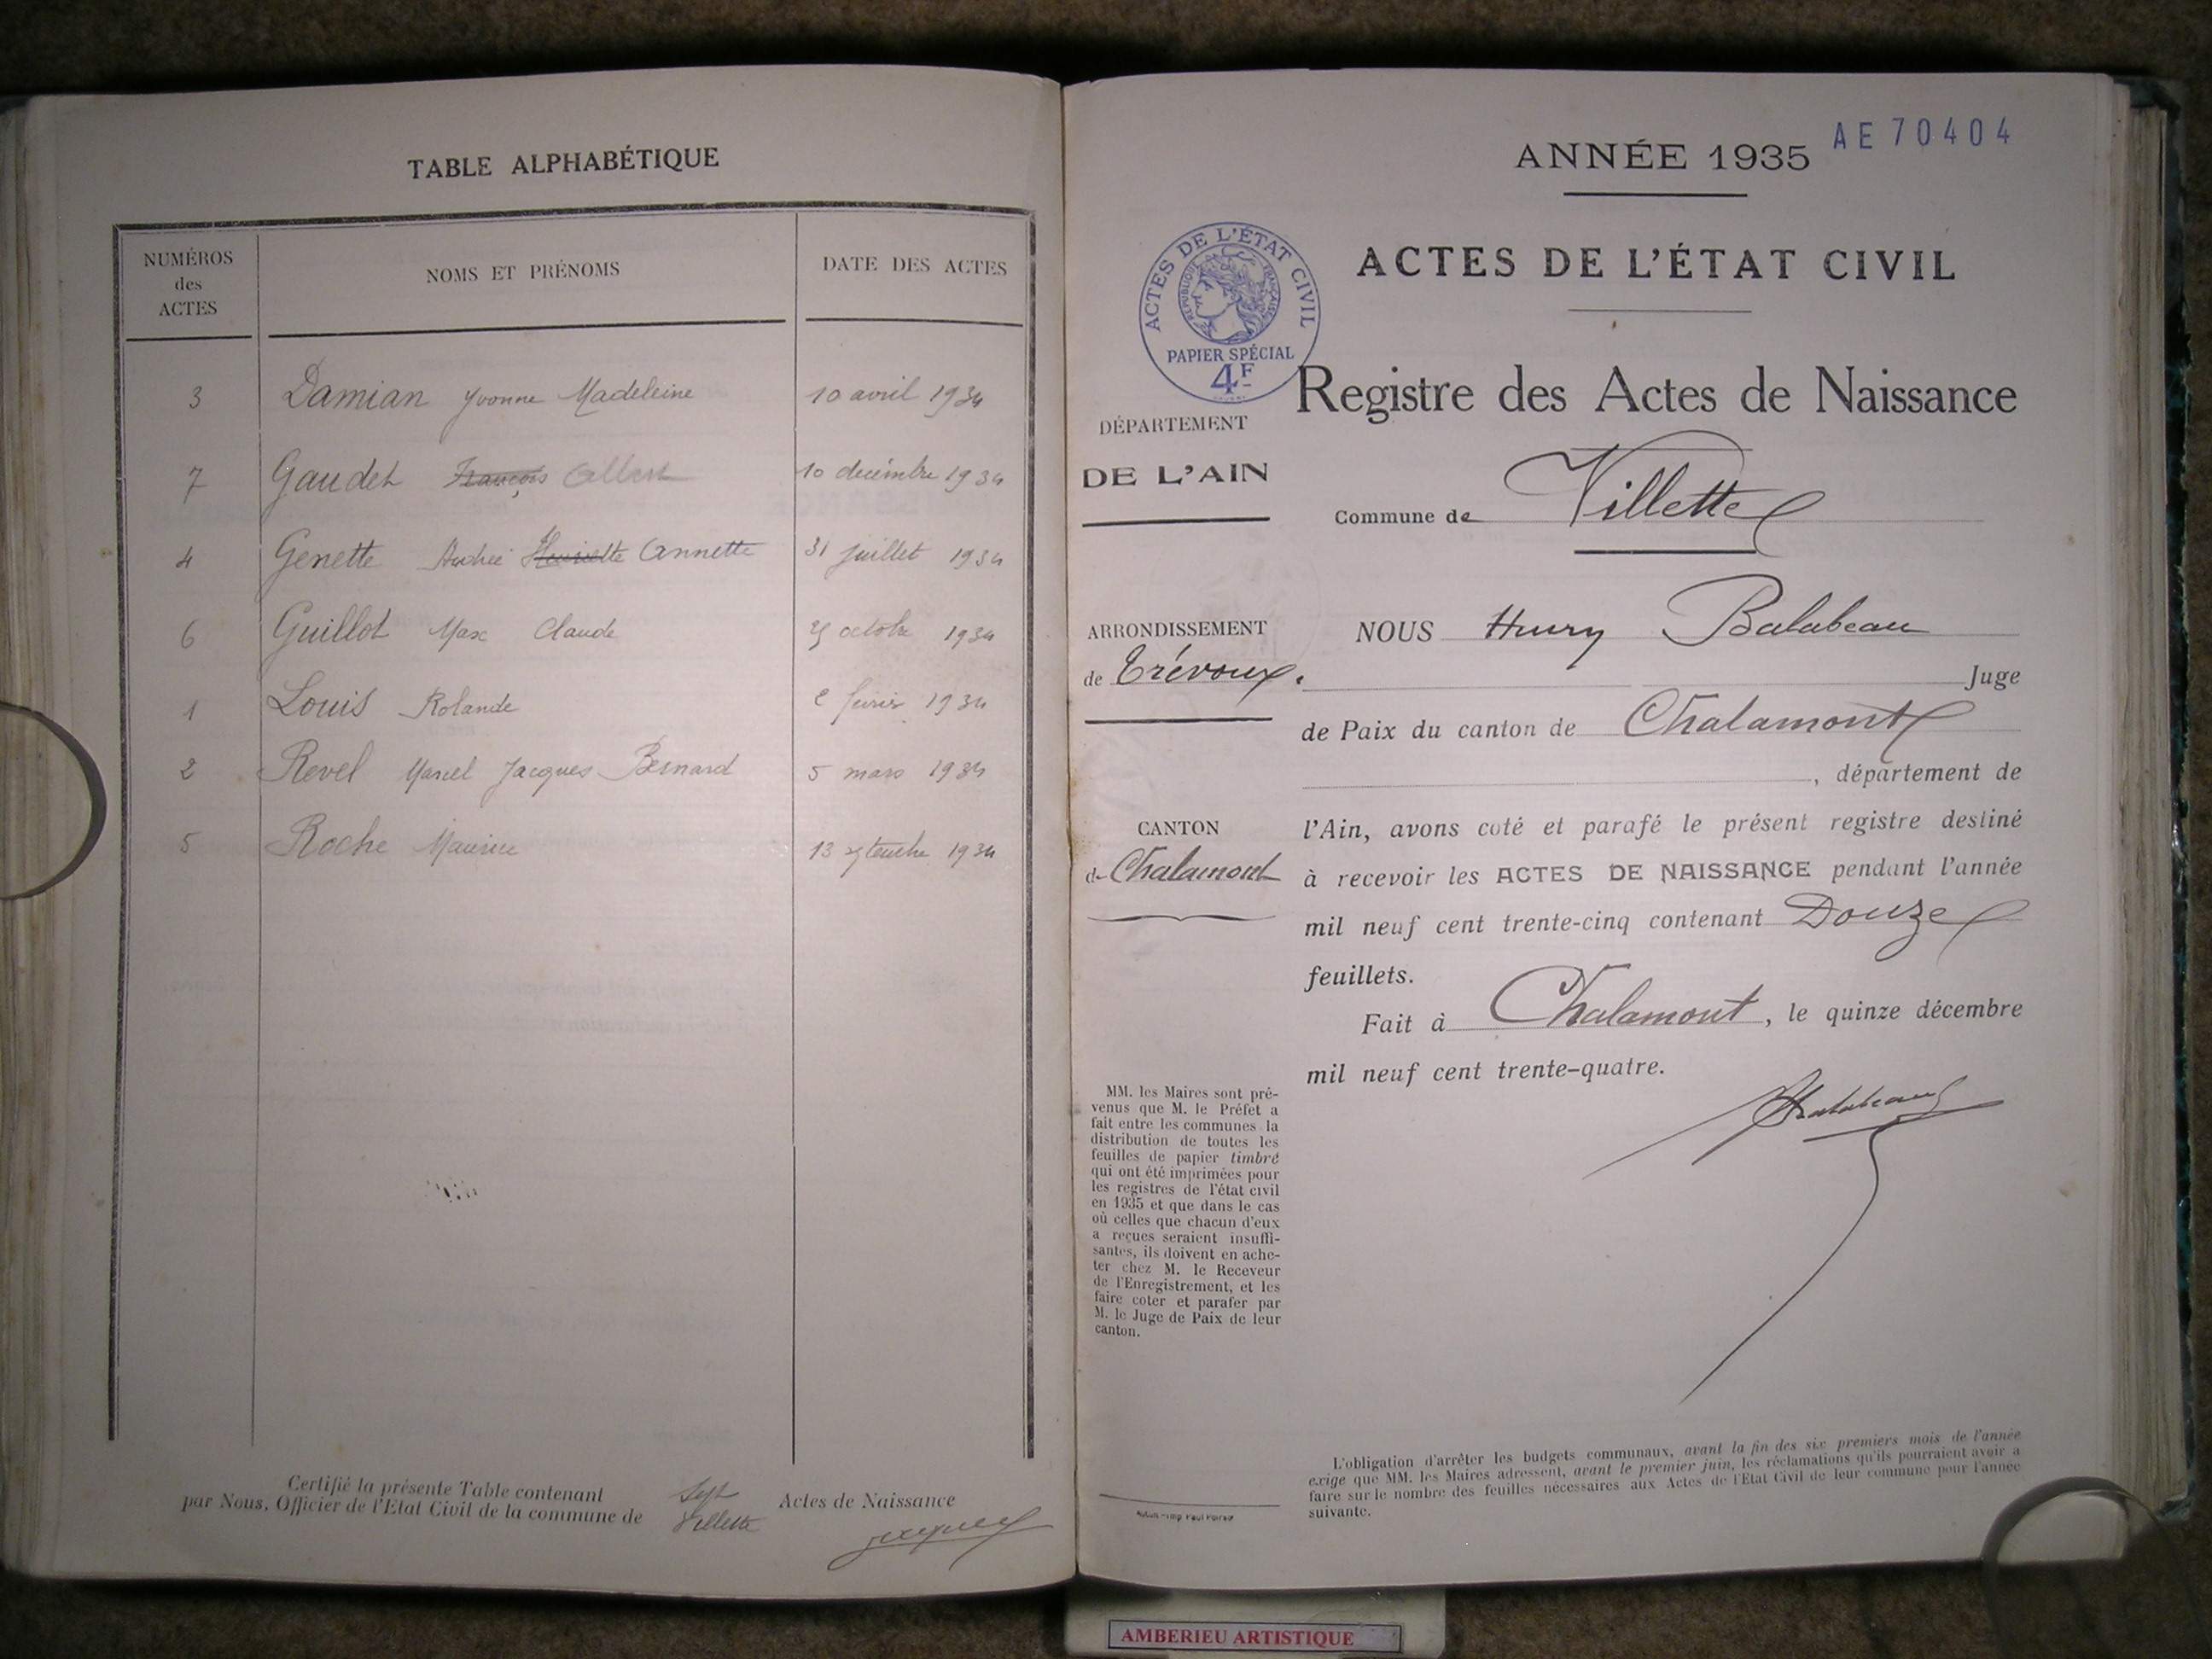 TABLE ALPHABÉTIQUE
NUMÉROS
des
ACTES
NOMS ET PRÉNOMS
DATE DES ACTES
3 Damian Yvonne Madeleine 10 avril 1934
7 Gaudet François Albert 10 decémbre 1934
4 Genette Andrée Henriette Annette 31 juillet 1934
6 Guillot Max Claude octobre 1934
1 Louis Rolande 2 février 1934
2 Revel Marcel Jacques Bernard 5 mars 1934
5 Roche Maurice 13 septembre 1934
Certifié la présente Table contenant Sept Actes de Naissance
par Nous, Officier de l'Etat Civil de la commune de Villette
ANNÉE 1935
AE 70404
ACTES DE L'ÉTAT CIVIL
ACTES DE L'ÉTAT CIVIL
RÉPUBLIQUE FRANÇAISE
PAPIER SPÉCIAL
4F
Registre des Actes de Naissance
DÉPARTEMENT
DE L'AIN
Commune de Villette
ARRONDISSEMENT
de Trévoux.
CANTON
de Chalamont
NOUS Henry Balabeau
Juge
de Paix du canton de Chalamont
, département de
l'Ain, avons coté et parafé le présent registre destiné
à recevoir les ACTES DE NAISSANCE pendant l'année
mil neuf cent trente-cinq contenant Douze
feuillets.
Fait à Chalamont, le quinze décembre
mil neuf cent trente-quatre.
Balabeau
MM. les Maires sont pré-
venus que M. le Préfet a
fait entre les communes la
distribution de toutes les
feuilles de papier timbré
qui ont été imprimées pour
les registres de l'état civil
en 1935 et que dans le cas
où celles que chacun d'eux
a reçues seraient insuffi-
santes, ils doivent en ache-
ter chez M. le Receveur
de l'Enregistrement, et les
faire coter et parafer par
M. le Juge de Paix de leur
canton.
L'obligation d'arrêter les budgets communaux, avant la fin des six premiers mois de l'année
exige que MM. les Maires adressent, avant le premier juin, les réclamations qu'ils pourraient avoir a
faire sur le nombre des feuilles nécessaires aux Actes de l'Etat Civil de leur commune pour l'année
suivante.
AMBERIEU ARTISTIQUE